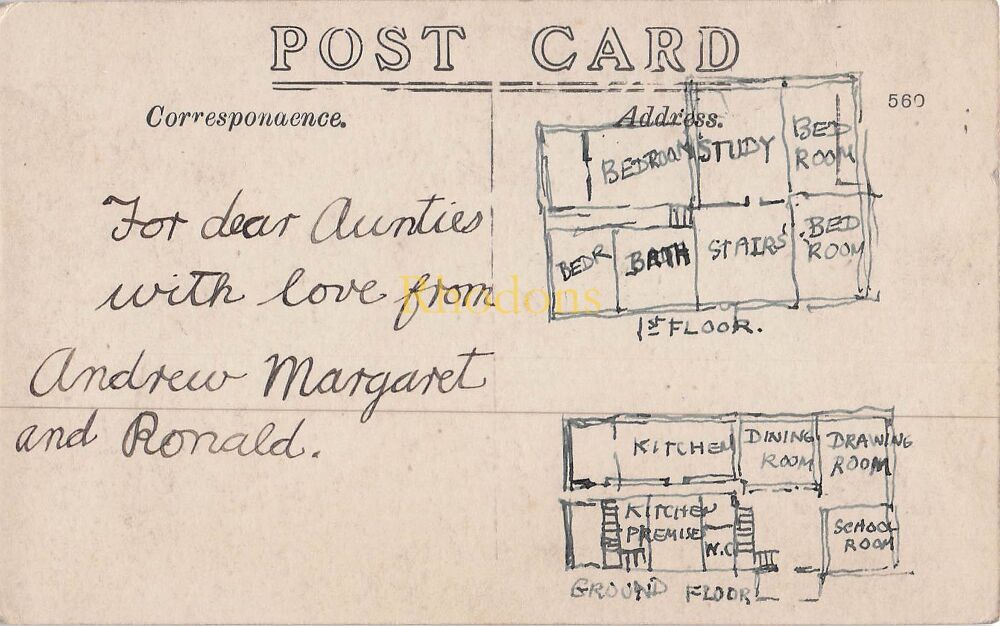 POST CARD
Corresponaence.
Address.
560
For dear Aunties
with love from
Andrew Margaret
and Ronald.
Rhodons
BEDROOM
STUDY
BED
ROOM
BEDR
BATH
STAIRS
BED
ROOM
1ST FLOOR.
KITCHEN
DINING
ROOM
DRAWING
ROOM
KITCHEN
PREMISES
W.C
SCHOOL
ROOM
GROUND FLOOR